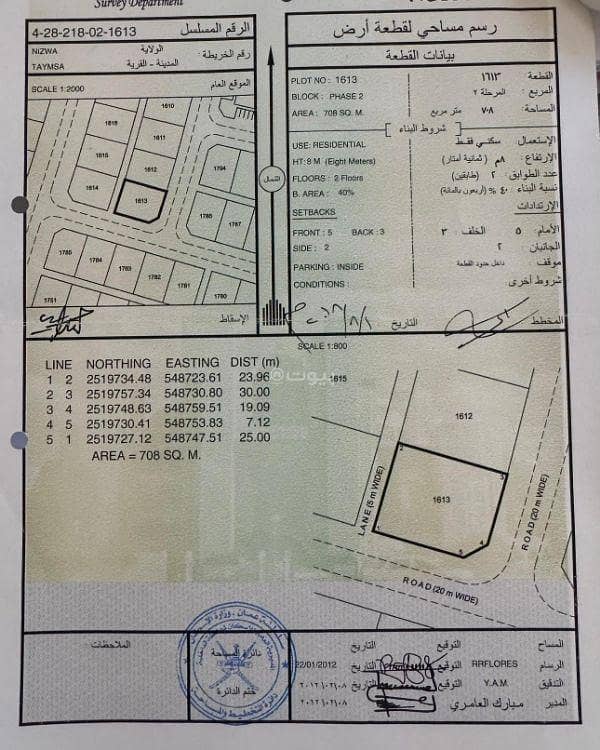 Survey Department
4-28-218-02-1613 الرقم المسلسل
NIZWA الولاية
TAYMSA المدينة - القرية
رقم الخريطة
SCALE 1:2000 الموقع العام
1610
1616
1611
1615
1612
1794
1614
1613
1786
1787
1785
1784
1783
1782
1781
1780
1781
الإسقاط
الشمال
رسم مساحي لقطعة أرض
بيانات القطعة
PLOT NO : 1613 القطعة ١٦١٣
BLOCK : PHASE 2 المربع المرحلة ٢
AREA : 708 SQ. M. المساحة ٧٠٨ متر مربع
شروط البناء
USE: RESIDENTIAL الإستعمال سكني فقط
HT: 8 M (Eight Meters) الإرتفاع ٨م (ثمانية أمتار)
FLOORS : 2 Floors عدد الطوابق ٢ (طابقين)
B. AREA : 40% نسبة البناء ٤٠ % (أربعون بالمائة)
SETBACKS الإرتدادات
FRONT : 5 BACK : 3 الأمام ٥ الخلف ٣
SIDE : 2 الجانبان ٢
PARKING : INSIDE موقف داخل حدود القطعة
CONDITIONS : شروط أخرى
المخطط التاريخ
SCALE 1:800
LINE NORTHING EASTING DIST (m)
1 2 2519734.48 548723.61 23.96
2 3 2519757.34 548730.80 30.00
3 4 2519748.63 548759.51 19.09
4 5 2519730.41 548753.83 7.12
5 1 2519727.12 548747.51 25.00
AREA = 708 SQ. M.
بيوت
1615
1612
1613
2
3
1
5
4
LANE (5 m WIDE)
ROAD (20 m WIDE)
ROAD (20 m WIDE)
الملاحظات
دائرة المساحة
ختم الدائرة
المساح التوقيع التاريخ
الرسام RRFLORES التوقيع التاريخ 22/01/2012
التدقيق Y.A.M التوقيع التاريخ
المدير مبارك العامري